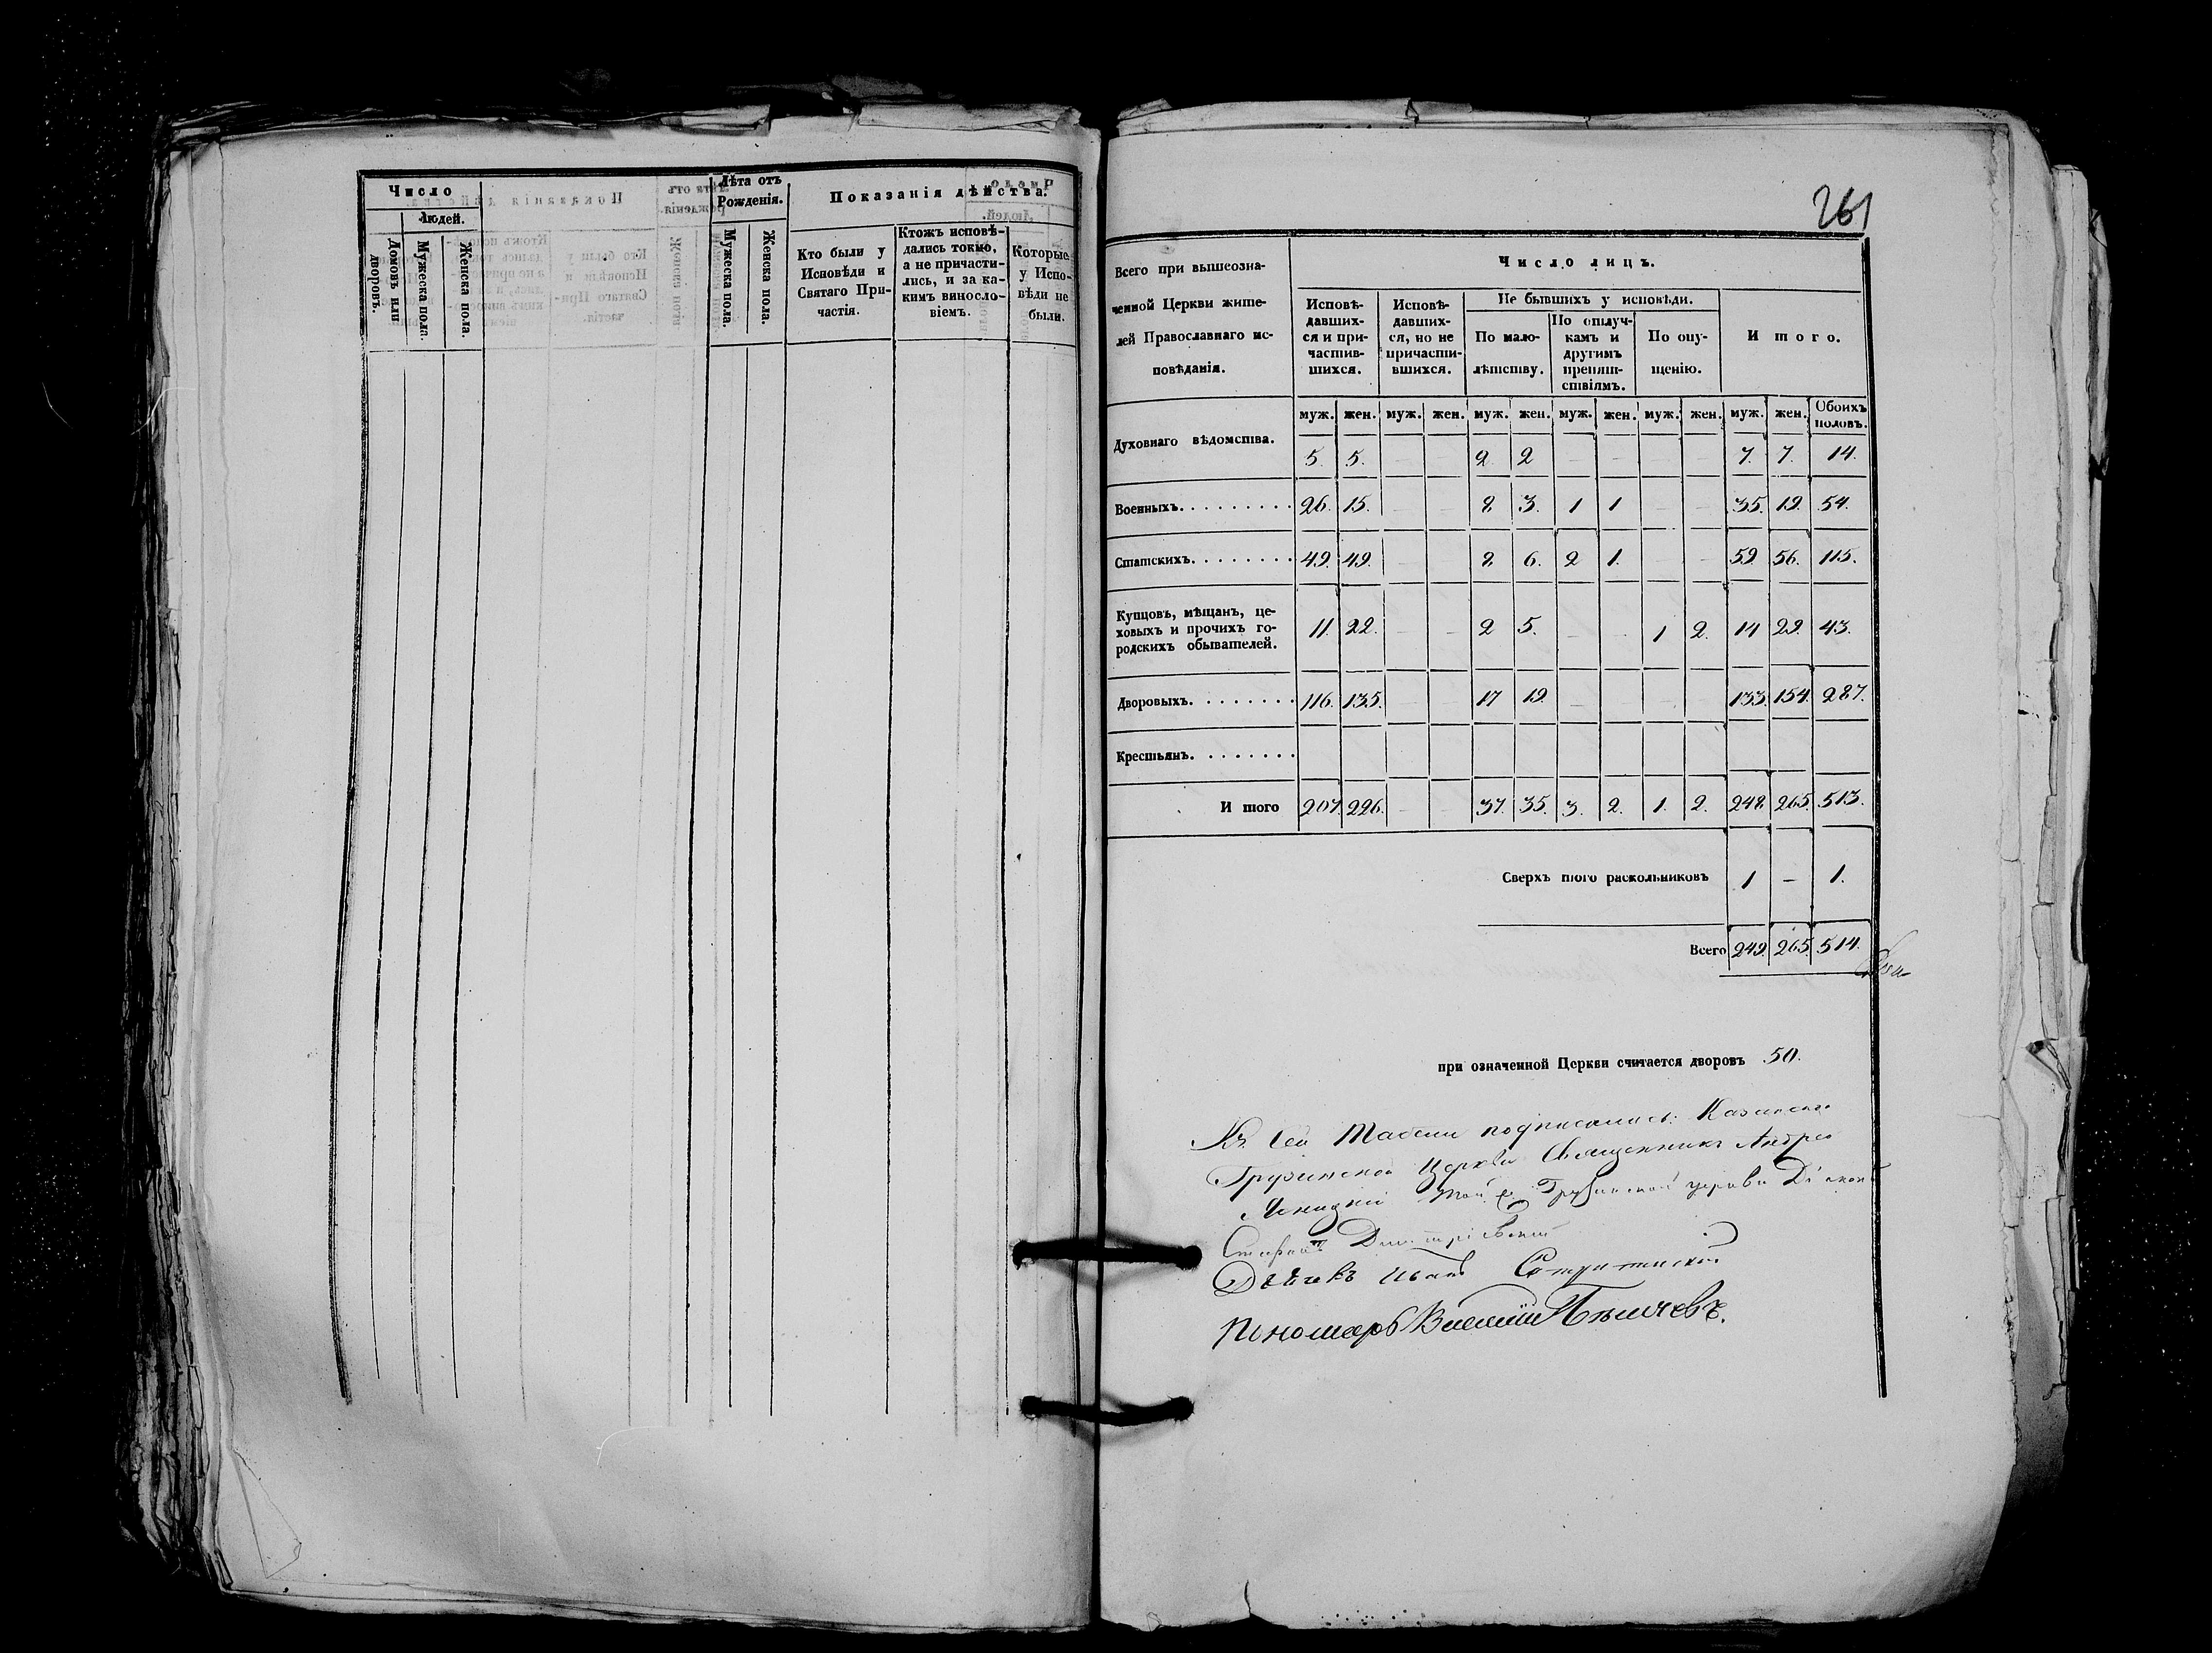 Число
Людей.
Домовъ или дворовъ.
Мужеска пола.
Женска пола.
Лѣта отъ Рожденія.
Мужеска пола.
Женска пола.
Показанія дѣйства.
Кто были у Исповѣди и Святаго При-
частія.
Ктожъ исповѣ-
дались токмо,
а не причасти-
лись, и за ка-
кимъ виносло-
віемъ.
Которые у Испо-
вѣди не были.
261
Всего при вышеозна-
ченной Церкви жите-
лей Православнаго ис-
повѣданія.
Число лицъ.
Исповѣ-
давших-
ся и при-
частив-
шихся.
Исповѣ-
давших-
ся, но не
причасти-
вшихся.
Не бывшихъ у исповѣди.
По мало-
лѣтству.
По отлуч-
камъ и
другимъ
препят-
ствіямъ.
По опу-
щенію.
Итого.
муж. жен. муж. жен. муж. жен. муж. жен. муж. жен. муж. жен. Обоихъ половъ.
Духовнаго вѣдомства. 5. 5. — — 2 2 — — — — 7. 7. 14.
Военныхъ. 26. 15. — — 8 3. 1 1 — — 35. 19. 54.
Статскихъ. 49. 49. — — 8 6. 2 1. — — 59. 56. 115.
Купцовъ, мѣщанъ, це-
ховыхъ и прочихъ го-
родскихъ обывателей. 11. 22. — — 2 5. — — 1 2. 14 29. 43.
Дворовыхъ. 116. 135. — — 17 19. — — — — 133. 154. 287.
Крестьянъ.
Итого 207. 226. — — 37. 35. 3. 2. 1. 2. 248. 265. 513.
Сверхъ того раскольниковъ 1 — 1.
Всего 249. 265. 514.
при означенной Церкви считается дворовъ 50.
Къ сей Табели подписались: Казанско
Грузинской Церкви Священникъ Андрей
той же Грузинской церкви Діакон
Стефанъ Димитріевскій
Дьячекъ Иванъ Стритенскій
Пономарь Василій